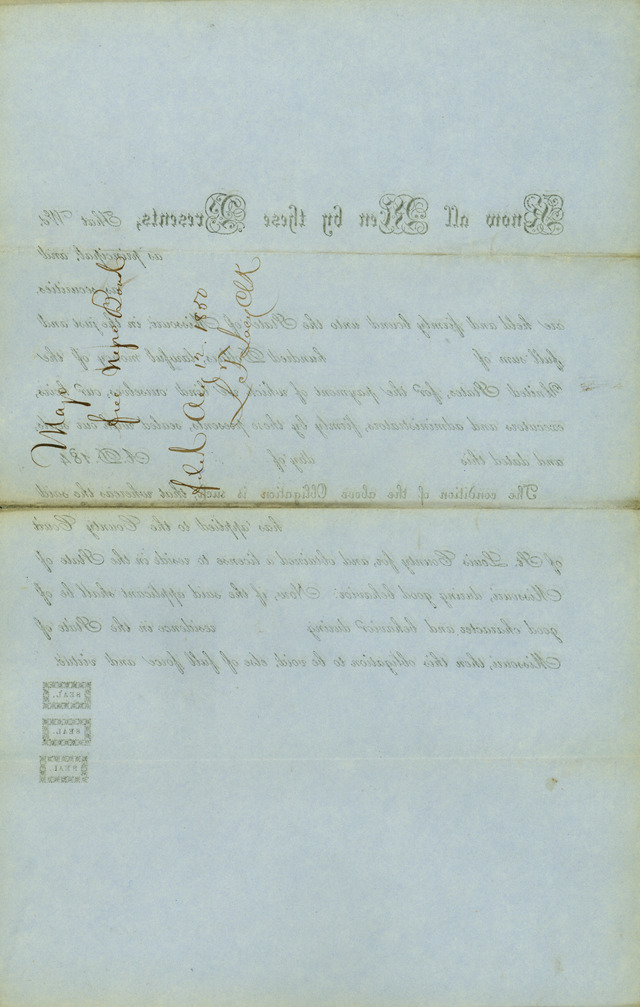 Know all Men by these Presents, That We,
as principal, and
securities
are held and firmly bound unto the State of Missouri, in the just and
full sum of hundred Dollars, lawful money of the
United States, for the payment of which we bind ourselves, our heirs,
executors and administrators, firmly by these presents, sealed with our seals,
and dated this day of A.D. 184
The condition of the above Obligation is such, that whereas the said
has applied to the County Court
of St. Louis County for, and obtained a license to reside in the State of
Missouri, during good behavior: Now, if the said applicant shall be of
good character and behavior during residence in the State of
Missouri, then this obligation to be void, else of full force and virtue.
SEAL.
SEAL
SEAL
free Negro Bond
1850